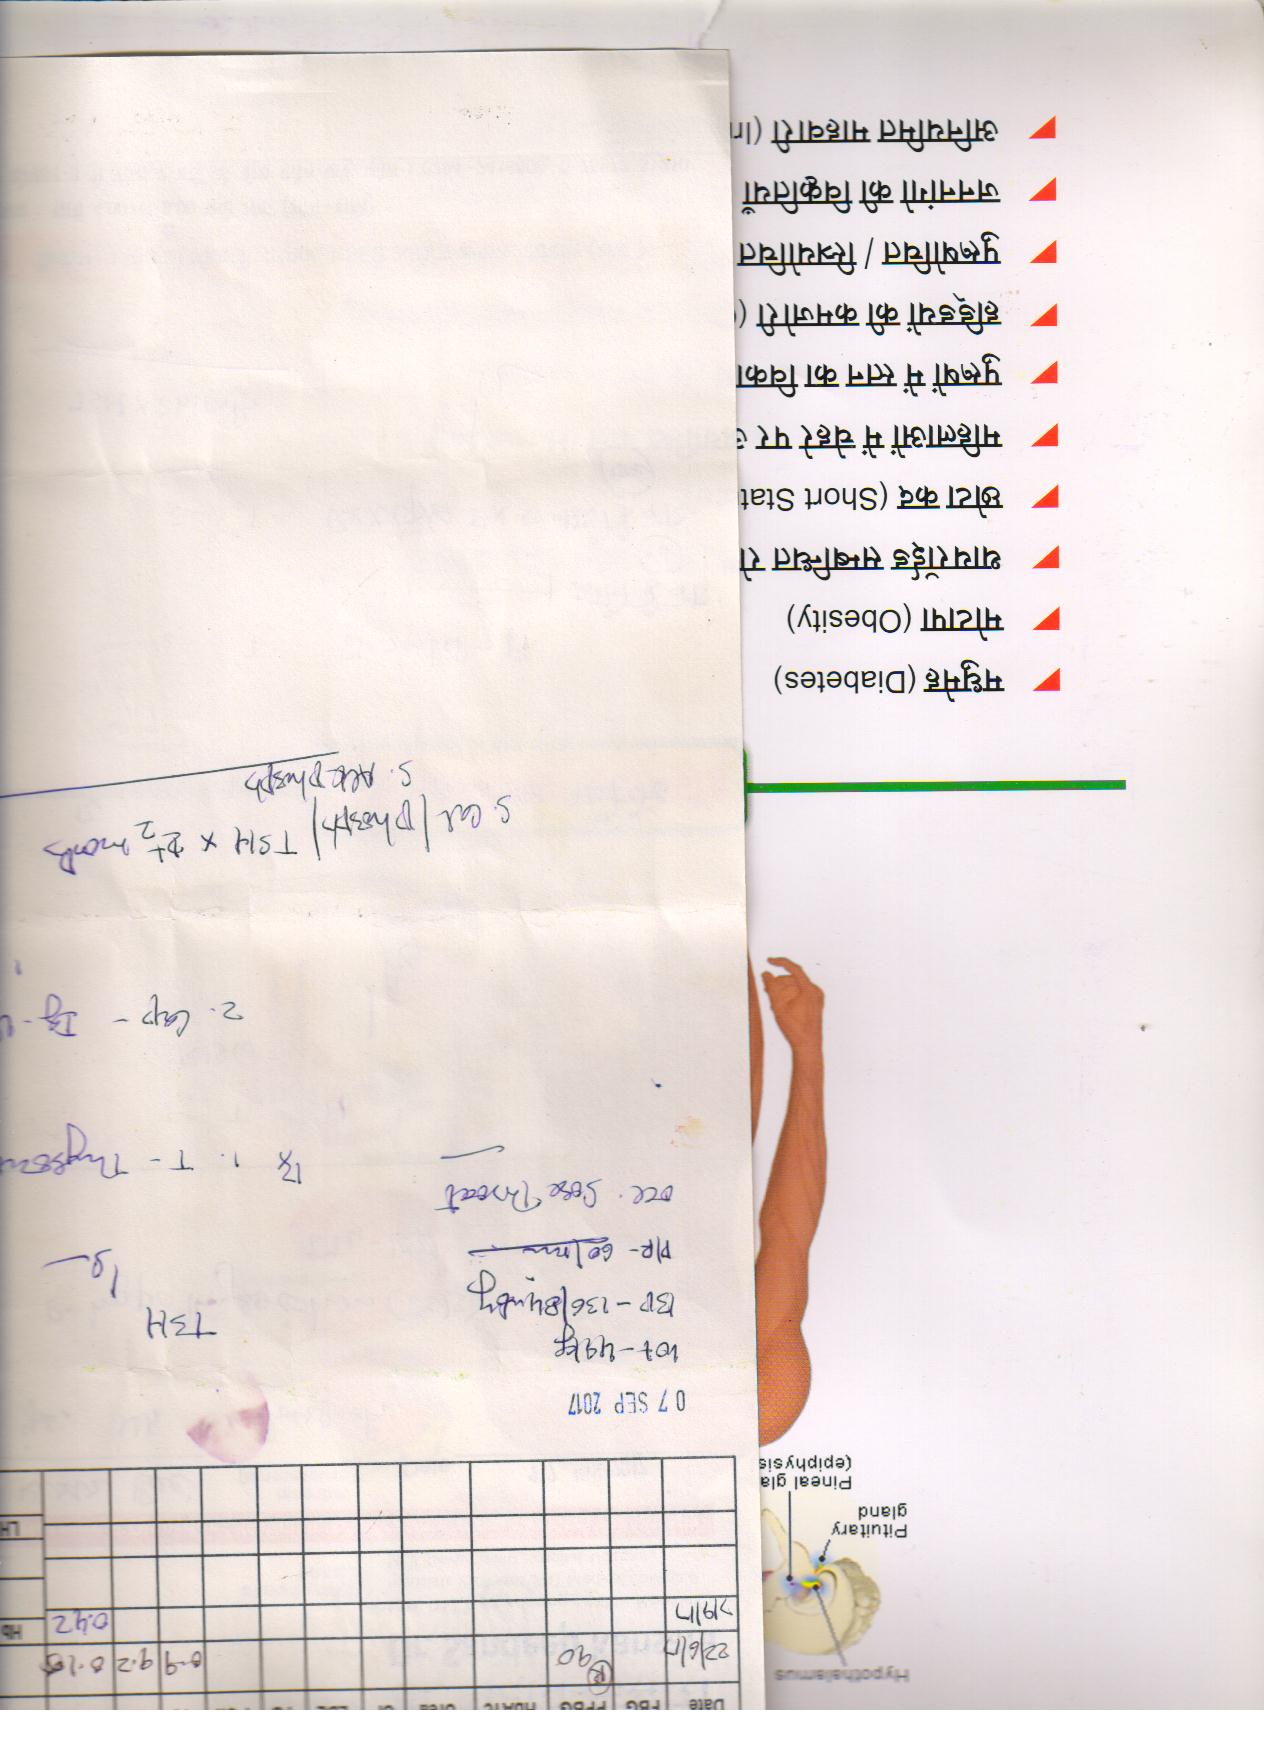 Hypothalamus
Pituitary
gland
Pineal gla
(epiphysis
Date FBG PPBG HbA1C Urea Cr LDL
22/6/17 90 9.2
7/9/17 0.42
Hb
LH
07 SEP 2017
wt - 49 kg
BP - 136/84 mmHg
P/R -
occ. Sore Throat
TSH
Rx 1. T -
2. Cap -
S. Cal/phosph/TSH x 2½ months
S. Alk phosph
मधुमेह (Diabetes)
मोटापा (Obesity)
थायरॉईड सम्बन्धित रो
छोटा कद (Short Statu
महिलाओं में चेहरे पर
पुरूषों में स्तन का विका
हड्डियों की कमजोरी (
पुरूषोचित / स्त्रियोचित
जननांगो की विकृतियाँ
अनियमित माहवारी (In